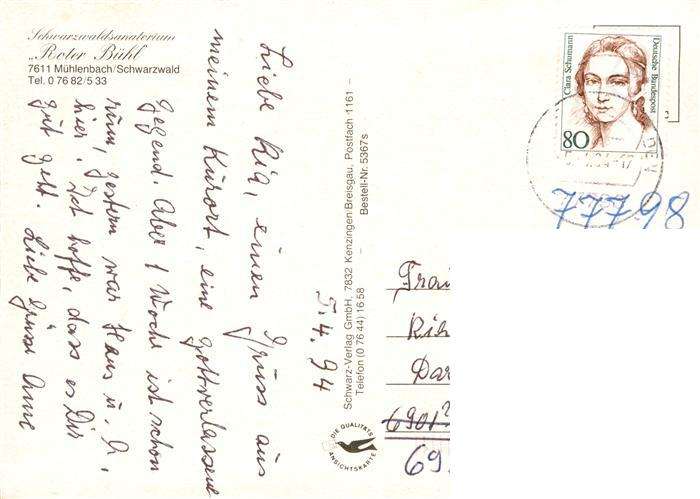 Schwarzwaldsanatorium
„Roter Bühl"
7611 Mühlenbach/Schwarzwald
Tel. 0 76 82/5 33
Liebe Ria, einen Gruss aus
meinem Kurort, eine gottverlassene
Gegend. Aber 1 Woche ist schon
rum, gestern war Hans u.
hier. Ich hoffe, dass es Dir
gut geht. Liebe Grüsse Anne
5.4.94
Schwarz-Verlag GmbH, 7832 Kenzingen-Breisgau, Postfach 1161 –
Telefon (0 76 44) 16 58 – Bestell-Nr. 5367s
DIE QUALITÄTS
ANSICHTSKARTE
Clara Schumann
Deutsche Bundespost
80
77798
Frau
Ria
Dar
6901
69